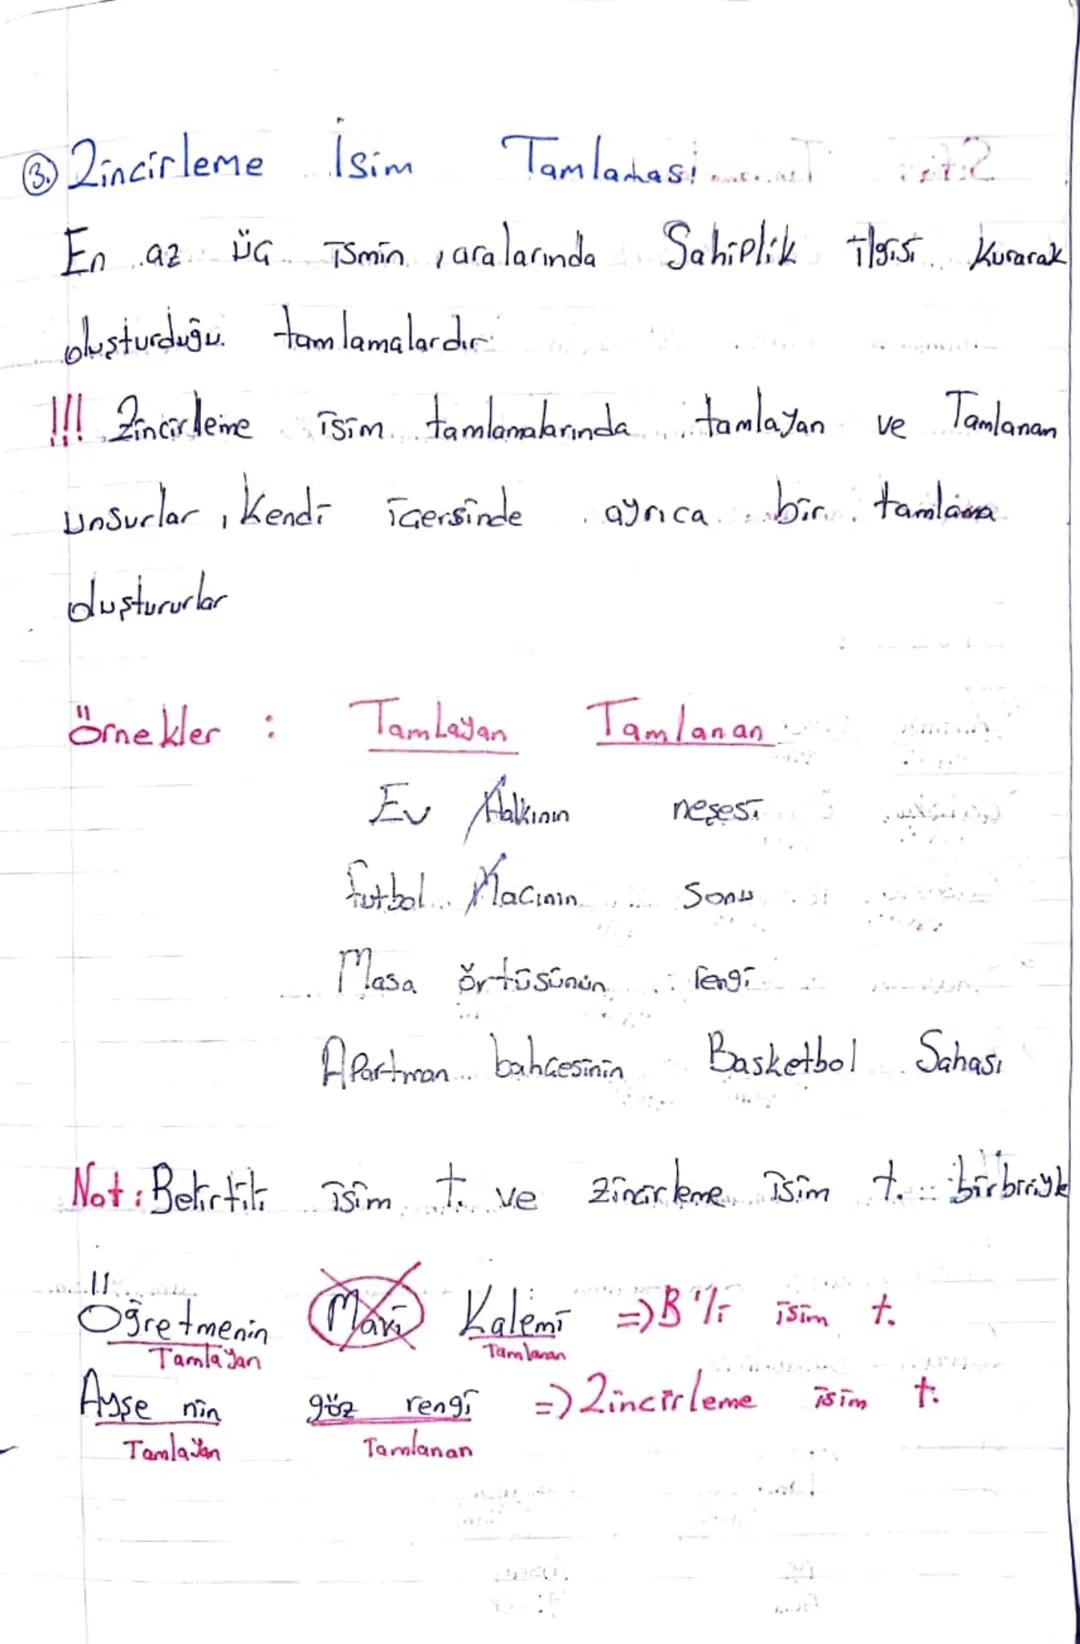 3. Zincirleme İsim Tamlaması
En az üç ismin, aralarında Sahiplik ilgisi Kurarak
oluşturduğu tamlamalardır.
!!! Zincirleme isim tamlamalarında tamlayan ve Tamlanan
unsurlar, Kendi içersinde ayrıca bir tamlama
oluştururlar
Örnekler : Tamlayan Tamlanan
Ev Halkının neşesi
futbol Macının sonu
Masa örtüsünün rengi
Apartman bahçesinin Basketbol Sahası
Not: Belirtili isim t. ve zincirleme isim t. birbiriyle
Öğretmenin Mavi Kalemi => B'li isim t.
Tamlayan Tamlanan
Ayşe nin göz rengi => Zincirleme isim t.
Tamlayan Tamlanan